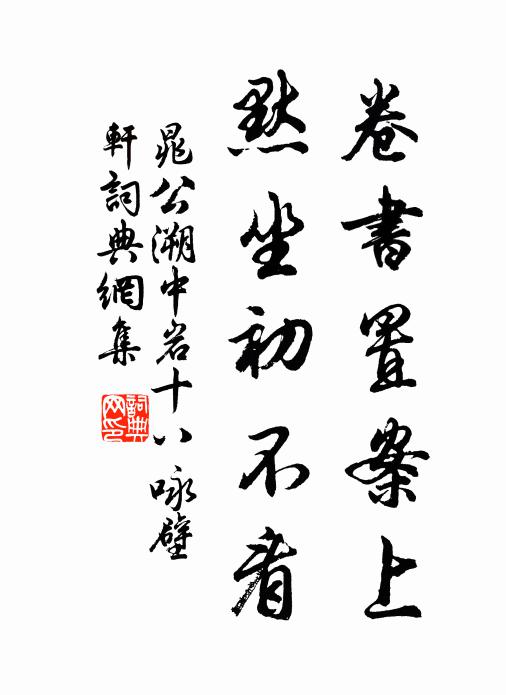 卷書置案上
默坐初不看
晁公溯中岩十八咏壁
軒詞典網集
詞典
网印